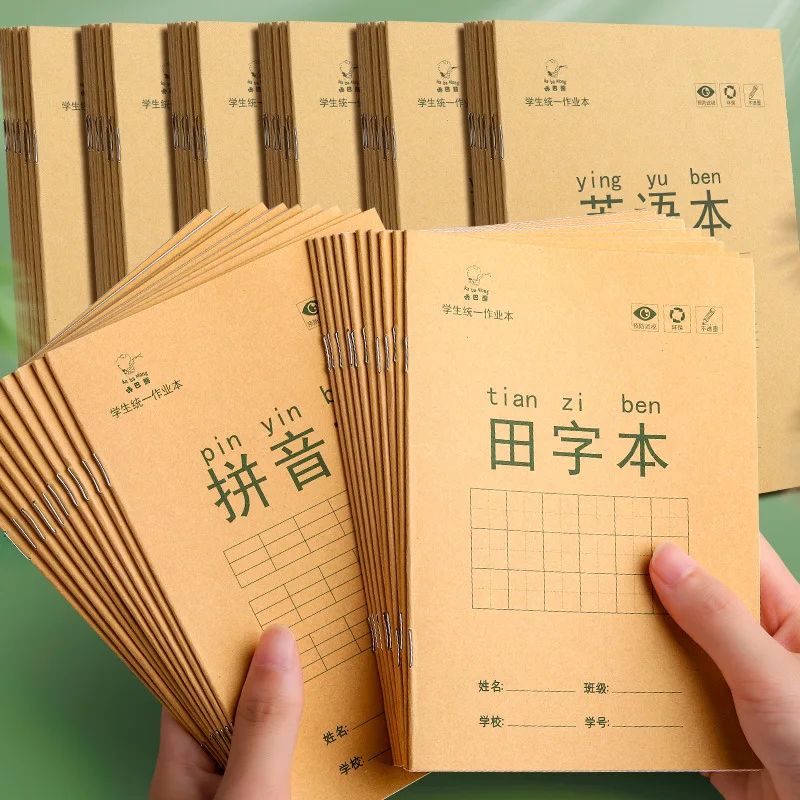 学生统一作业本
学生统一作业本
学生统一作业本
ying yu ben
英语本
学生统一作业本
pin yin
拼音
姓名:
学校:
学生统一作业本
预防近视
环保
不透墨
tian zi ben
田字本
姓名: 班级:
学校: 学号: